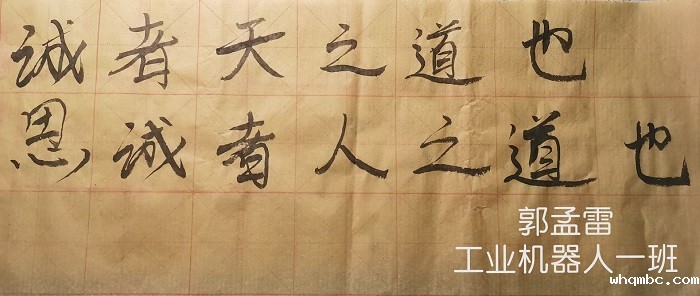 诚者天之道也
思诚者人之道也
郭孟雷
工业机器人一班
whqmbc.com